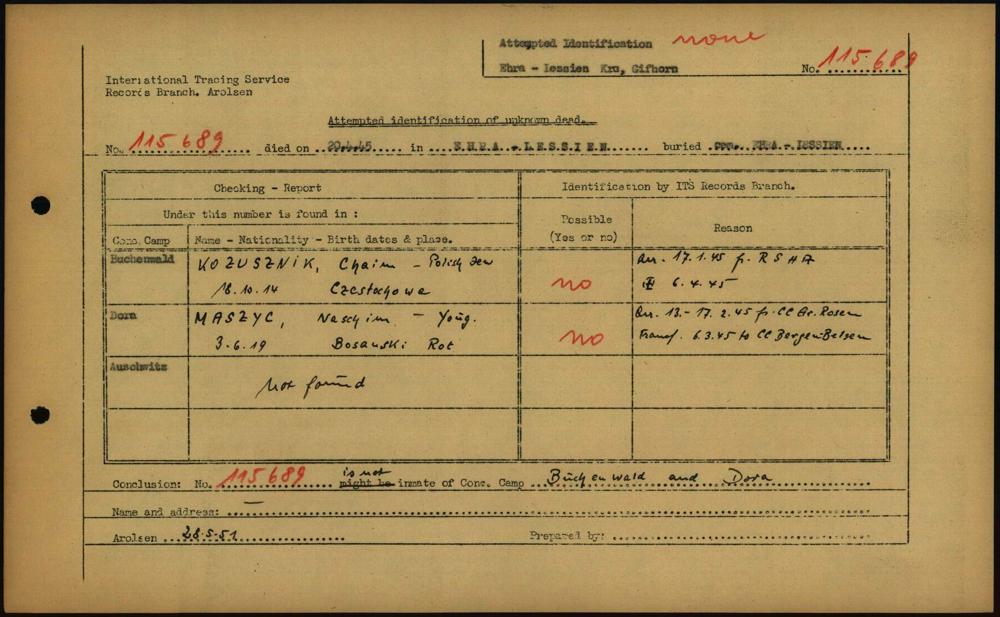 Attempted Identification none
Ehra - Lessien Krs, Gifhorn No. 115.689
International Tracing Service
Records Branch. Arolsen
Attempted identification of unknown dead.
No. 115689 died on 20.4.45 in EHRA - LESSIEN buried com. EHRA - LESSIEN
Checking - Report
Identification by ITS Records Branch.
Under this number is found in :
Possible
(Yes or no)
Reason
Conc. Camp Name - Nationality - Birth dates & place.
Buchenwald KOZUSZNIK, Chaim - Polish Jew no Arr. 17.1.45 fr. RSHA
18.10.14 Czestochowa 6.4.45
Dora MASZYC, Naschim - Youg. no Arr. 13.- 17.2.45 fr. CC Gr. Rosen
3.6.19 Bosanski Rot Transf. 6.3.45 to CC Bergen-Belsen
Auschwitz not found
Conclusion: No. 115689 is not might be inmate of Conc. Camp Buchenwald and Dora
Name and address: —
Arolsen 28.5.51 Prepared by: